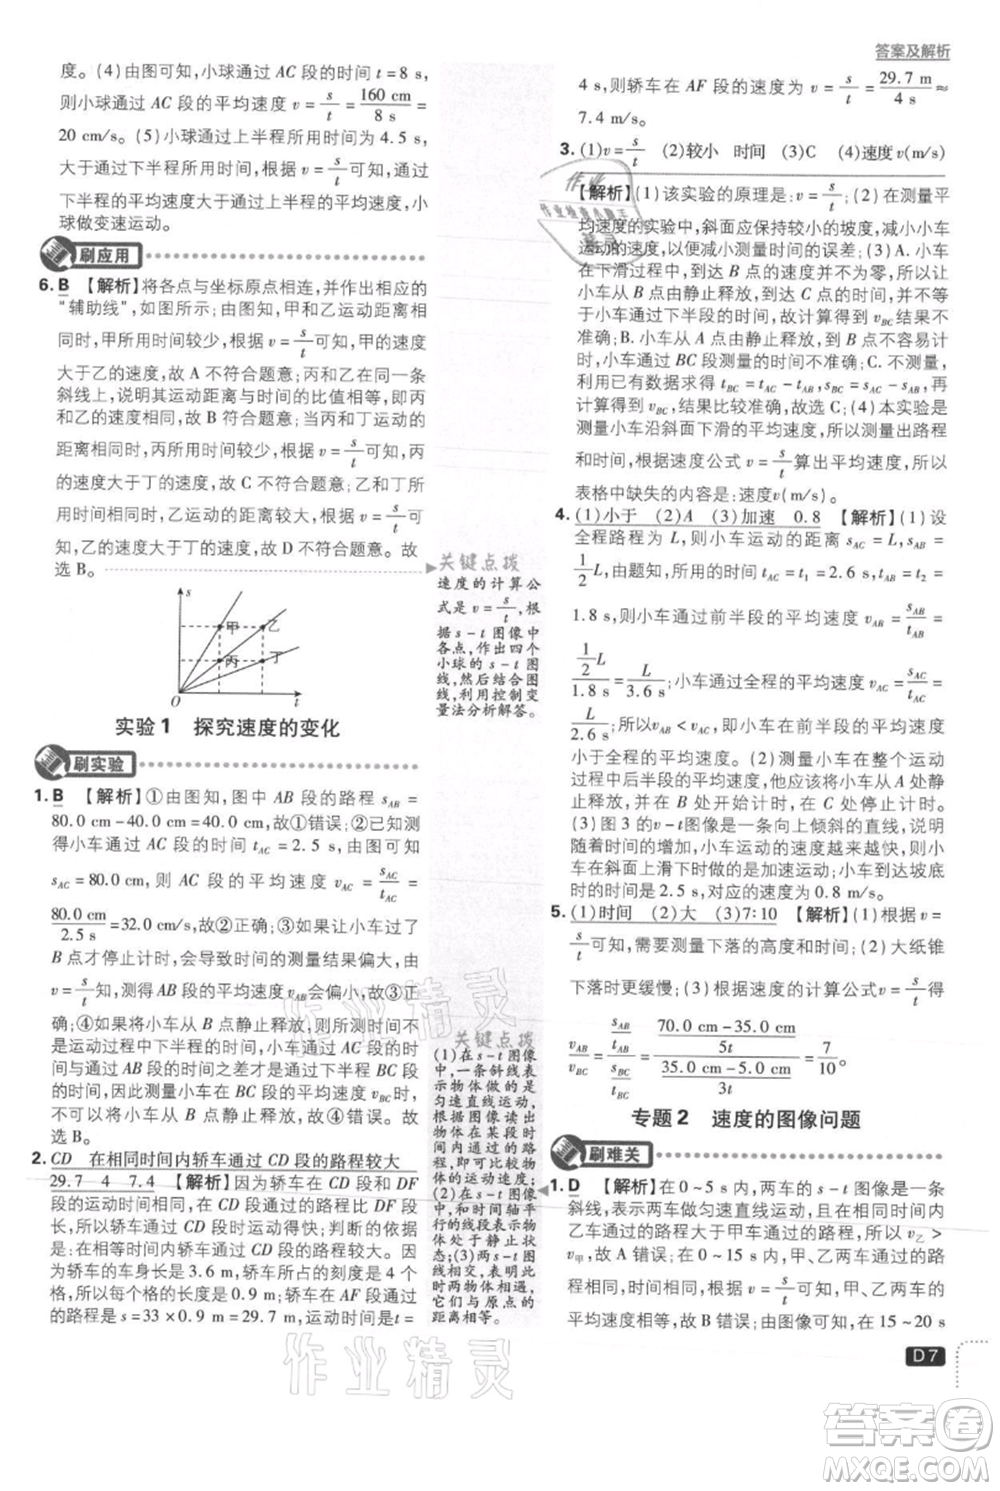 答案及解析
度。(4)由图可知,小球通过 AC 段的时间 t=8 s,
则小球通过 AC 段的平均速度 v=s/t=160 cm/8 s=
20 cm/s。(5)小球通过上半程所用时间为 4.5 s,
大于通过下半程所用时间,根据 v=s/t 可知,通过
下半程的平均速度大于通过上半程的平均速度,小
球做变速运动。
刷应用
6. B 【解析】将各点与坐标原点相连,并作出相关的
“辅助线”,如图所示,由图知,甲和乙运动距离相
同时,甲所用时间较少,根据 v=s/t 可知,甲的速度
大于乙的速度,故 A 不符合题意;丙和乙在同一条
斜线上,说明其运动距离与时间的比值相等,即丙
和乙的速度相同,故 B 符合题意;当丙和丁运动的
距离相同时,丙所用时间较少,根据 v=s/t 可知,丙
的速度大于丁的速度,故 C 不符合题意;乙和丁所
用时间相同时,乙运动的距离较大,根据 v=s/t 可
知,乙的速度大于丁的速度,故 D 不符合题意。故
选 B。
s
甲 乙
丙 丁
O t
实验 1 探究速度的变化
刷实验
1. B 【解析】①由图知,图中 AB 段的路程 s_AB=
80.0 cm-40.0 cm=40.0 cm,故①错误;②实验测
得小车通过 AC 段的时间 t_AC=2.5 s,由图知
s_AC=80.0 cm,则 AC 段的平均速度 v_AC=s_AC/t_AC=
80.0 cm/2.5 s=32.0 cm/s,故②正确;③如果小车过了
B 点才停止计时,会导致时间的测量结果偏大,由
v=s/t 知,测得 AB 段的平均速度 v_AB 会偏小,故③正
确;④如果将小车从 B 点静止释放,则小车的运动
过程与之前小车运动过程中下半程的不同,所测时
间与小车通过下半程的时间之差才是通过下半程的时
间,因此测量小车下半程的平均速度时,
不可以将小车从 B 点静止释放,故④错误。故
选 B。
2. CD 在相同时间内轿车通过 CD 段的路程较大
29.7 4 7.4 【解析】因为轿车在 CD 段和 DF
段的运动时间相同,轿车通过 CD 段的路程大于 DF
段,故轿车在 CD 段时运动得快;判断的依据是,
在相等时间内轿车通过 CD 段的路程较大;由图知,
因为轿车的车身长是 3.6 m,轿车所占的格子为 4
格,所以每个格的长度为 0.9 m;轿车在 AF 段通过
的路程是 s=33×0.9 m=29.7 m,所用的时间为 t=
关键点拨
速度的计算公
式是 v=s/t,根
据 s-t 图像中
各点,作出四个
小球的 s-t 图
线,然后结合图
线,利用控制变
量法分析解答。
关键点拨
(1)在 s-t 图像
中,一条斜线
表示物体做的是
匀速直线运动,
根据图像读出
物体在某段时
间内通过的路
程,可求出速度;
(2)在 s-t 图像
中,与时间轴平
行的线段表示
物体处于静止
状态;(3)两图
线相交,表示两
物体相遇,
它们与原点的
距离相等。
4 s,则轿车在 AF 段的平均速度为 v=s/t=29.7 m/4 s≈
7.4 m/s。
3. (1)v=s/t (2)较小 时间 (3)C (4)速度 v(m/s)
【解析】(1)该实验的原理是 v=s/t;(2)在测量平
均速度的实验中,斜面应保持较小的坡度,使小车
运动的速度较慢,以便减小测量时间的误差;(3)A. 小车
在下滑过程中,到达 B 点的速度并不为零,所以让
小车从 B 点由静止释放,到达 C 点所用的时间不
等于小车通过 BC 段的时间,故计算得到的 v_BC 不准
确;B. 小车从 A 点由静止释放,小车到 B 点时
再开始计时,到达 C 点停止计时,不容易判断
小车通过 BC 段测量的时间不准确;C. 间接测量,
利用已有数据求得 t_BC=t_AC-t_AB,s_BC=s_AC-s_AB,再
计算得到 v_BC,结果比较准确,故选 C;(4)本实验是
测量小车沿斜面下滑的平均速度,所以需测量出路程
和时间,根据速度公式 v=s/t 算出平均速度,所以
表格中缺失的内容是:速度 v(m/s)。
4. (1)小于 (2)A (3)加速 0.8 【解析】(1)设
全程路程为 L,则小车运动的距离 s_AC=L,s_AB=
1/2 L,由题知,所用的时间 t_AC=t_1=2.6 s,t_AB=t_2=
1.8 s,则小车通过前半段的平均速度 v_AB=s_AB/t_AB=
1/2 L/1.8 s=L/3.6 s;小车通过全程的平均速度 v_AC=s_AC/t_AC=
L/2.6 s;所以 v_AB<v_AC,即小车在前半段的平均速度
小于全程的平均速度。(2)测量小车在整个运动
过程中后半段的平均速度时,必须让小车从 A 处静
止释放,并在 B 处开始计时,在 C 处停止计时。
(3)图 3 的 v-t 图像是一条向上倾斜的直线,说明
随着时间的增加,小车运动的速度越来越快,所以
小车在斜面上滑下时做的是加速运动,小车到达坡底
时的时间是 2.5 s,对应的速度为 0.8 m/s。
5. (1)时间 (2)大 (3)7:10 【解析】(1)根据 v=
s/t 可知,需要测量下落的高度和时间。(2)大纸锥
下落时更缓慢;(3)根据速度的计算公式 v=s/t 得
v_AB/v_BC=(s_AB/t_AB)/(s_BC/t_BC)=((70.0 cm-35.0 cm)/5t)/((35.0 cm-5.0 cm)/3t)=7/10。
专题 2 速度的图像问题
刷难关
1. D 【解析】在 0~5 s 内,两车的 s-t 图像是一条
斜线,表示两车做匀速直线运动,在相同时间内
乙车通过的路程大于甲车通过的路程,所以 v_乙>
v_甲,故 A 错误;在 0~15 s 内,甲、乙两车通过的路
程相同,时间相同,根据 v=s/t 可知,甲、乙两车的
平均速度相等,故 B 错误;由图可知,在 15~20 s
D7
作业精灵
作业精灵
答案卷
MXQE.COM